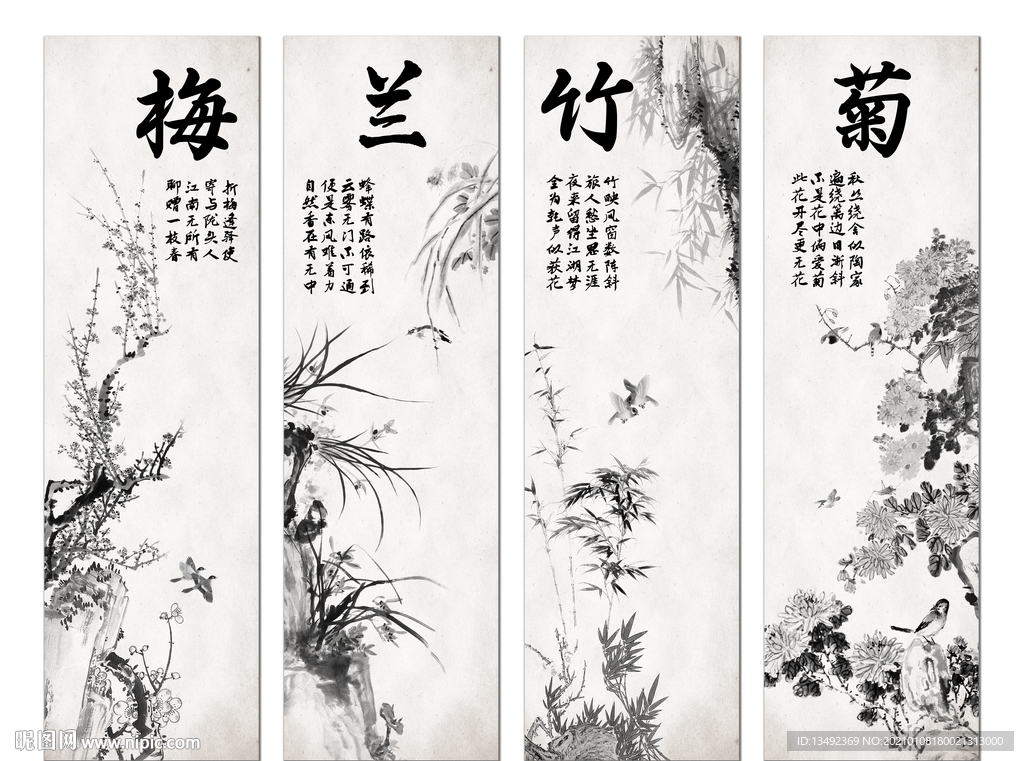 梅
折梅逢驿使
寄与陇头人
江南无所有
聊赠一枝春
兰
蜂蝶有路依稀到
云雾无门不可通
便是东风难着力
自然香在有无中
竹
竹映风窗数阵斜
旅人愁坐思无涯
夜来留得江湖梦
全为乾声似荻花
菊
秋丛绕舍似陶家
遍绕篱边日渐斜
不是花中偏爱菊
此花开尽更无花
昵图网 www.nipic.com
ID:13492369 NO:20210108180021313000